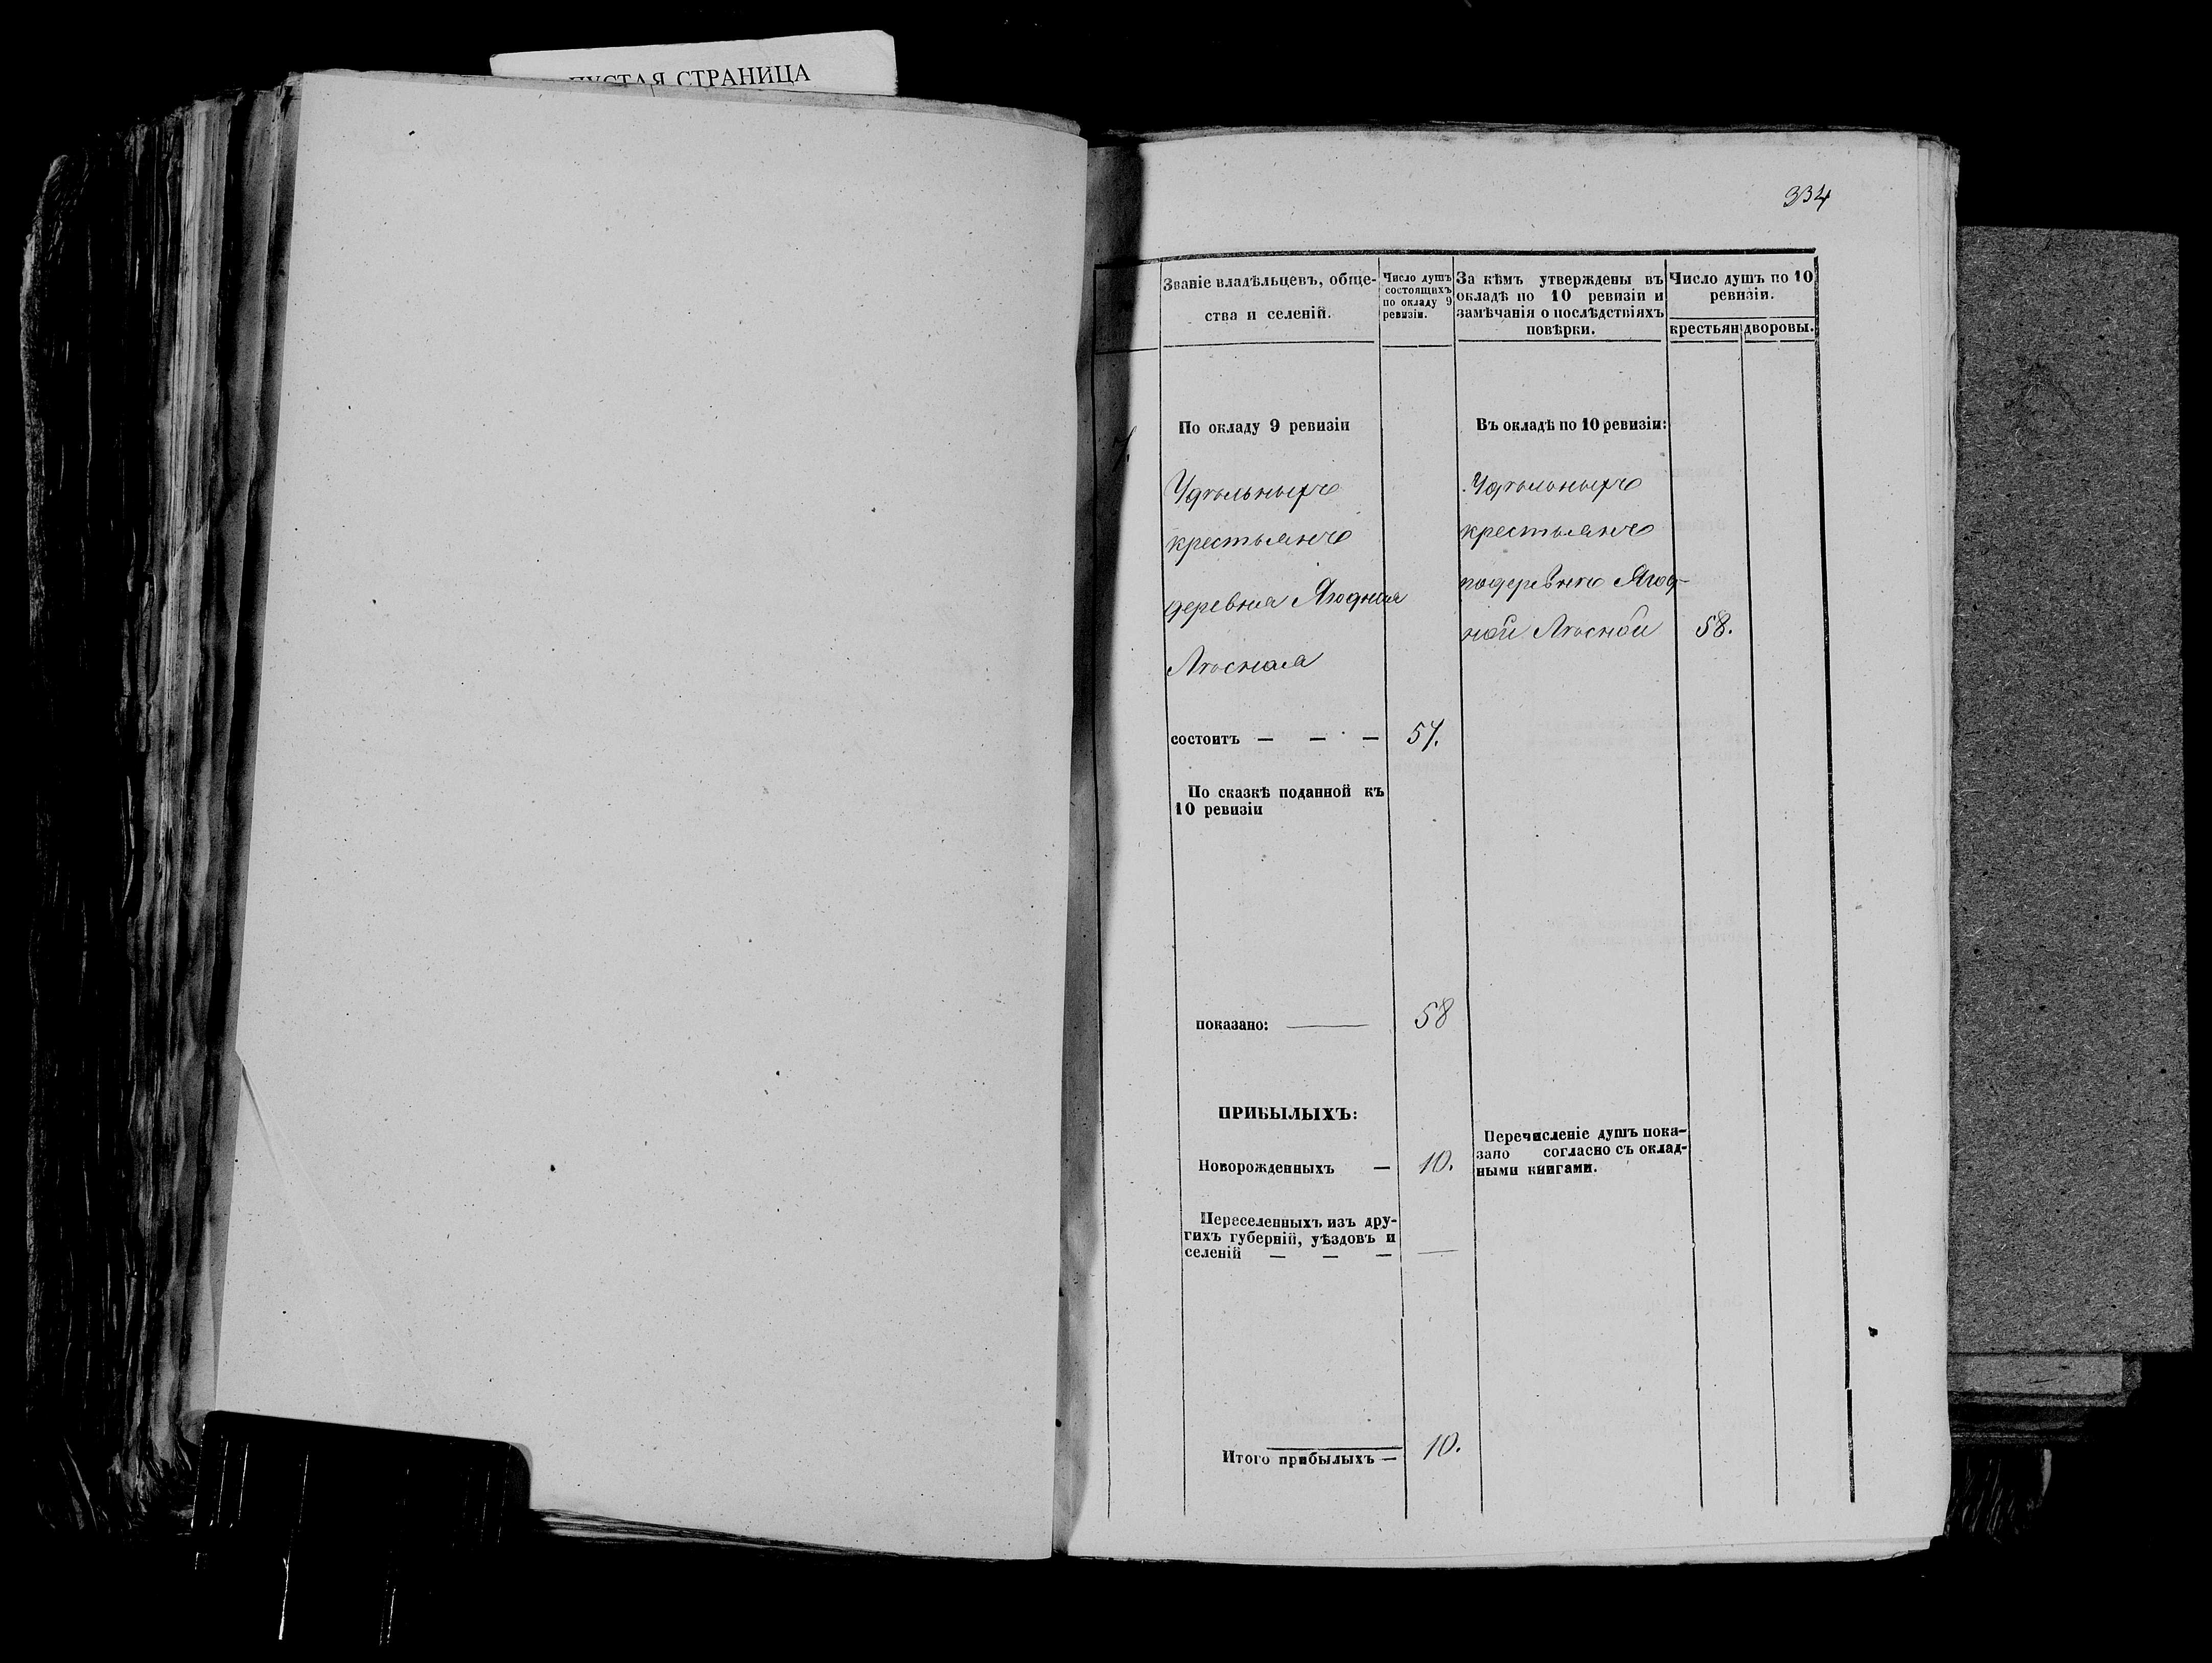 ПУСТАЯ СТРАНИЦА
334
Званіе владѣльцевъ, обще-
ства и селеній.
Число душъ
состоящихъ
по окладу 9
ревизіи.
За кѣмъ утверждены въ
окладѣ по 10 ревизіи и
замѣчанія о послѣдствіяхъ
повѣрки.
Число душъ по 10
ревизіи.
крестьян
дворовы.
По окладу 9 ревизіи
Удѣльныхъ
крестьянъ
деревня Ягодная
Лѣсная
состоитъ — — — 57.
По сказкѣ поданной къ
10 ревизіи
показано: — 58
ПРИБЫЛЫХЪ:
Новорожденныхъ — 10.
Переселенныхъ изъ дру-
гихъ губерній, уѣздовъ и
селеній — — — —
Итого прибылыхъ — 10.
Въ окладѣ по 10 ревизіи:
Удѣльныхъ
крестьянъ
по деревнѣ Ягод-
ной Лѣсной 58.
Перечисленіе душъ пока-
зано согласно съ оклад-
ными книгами.